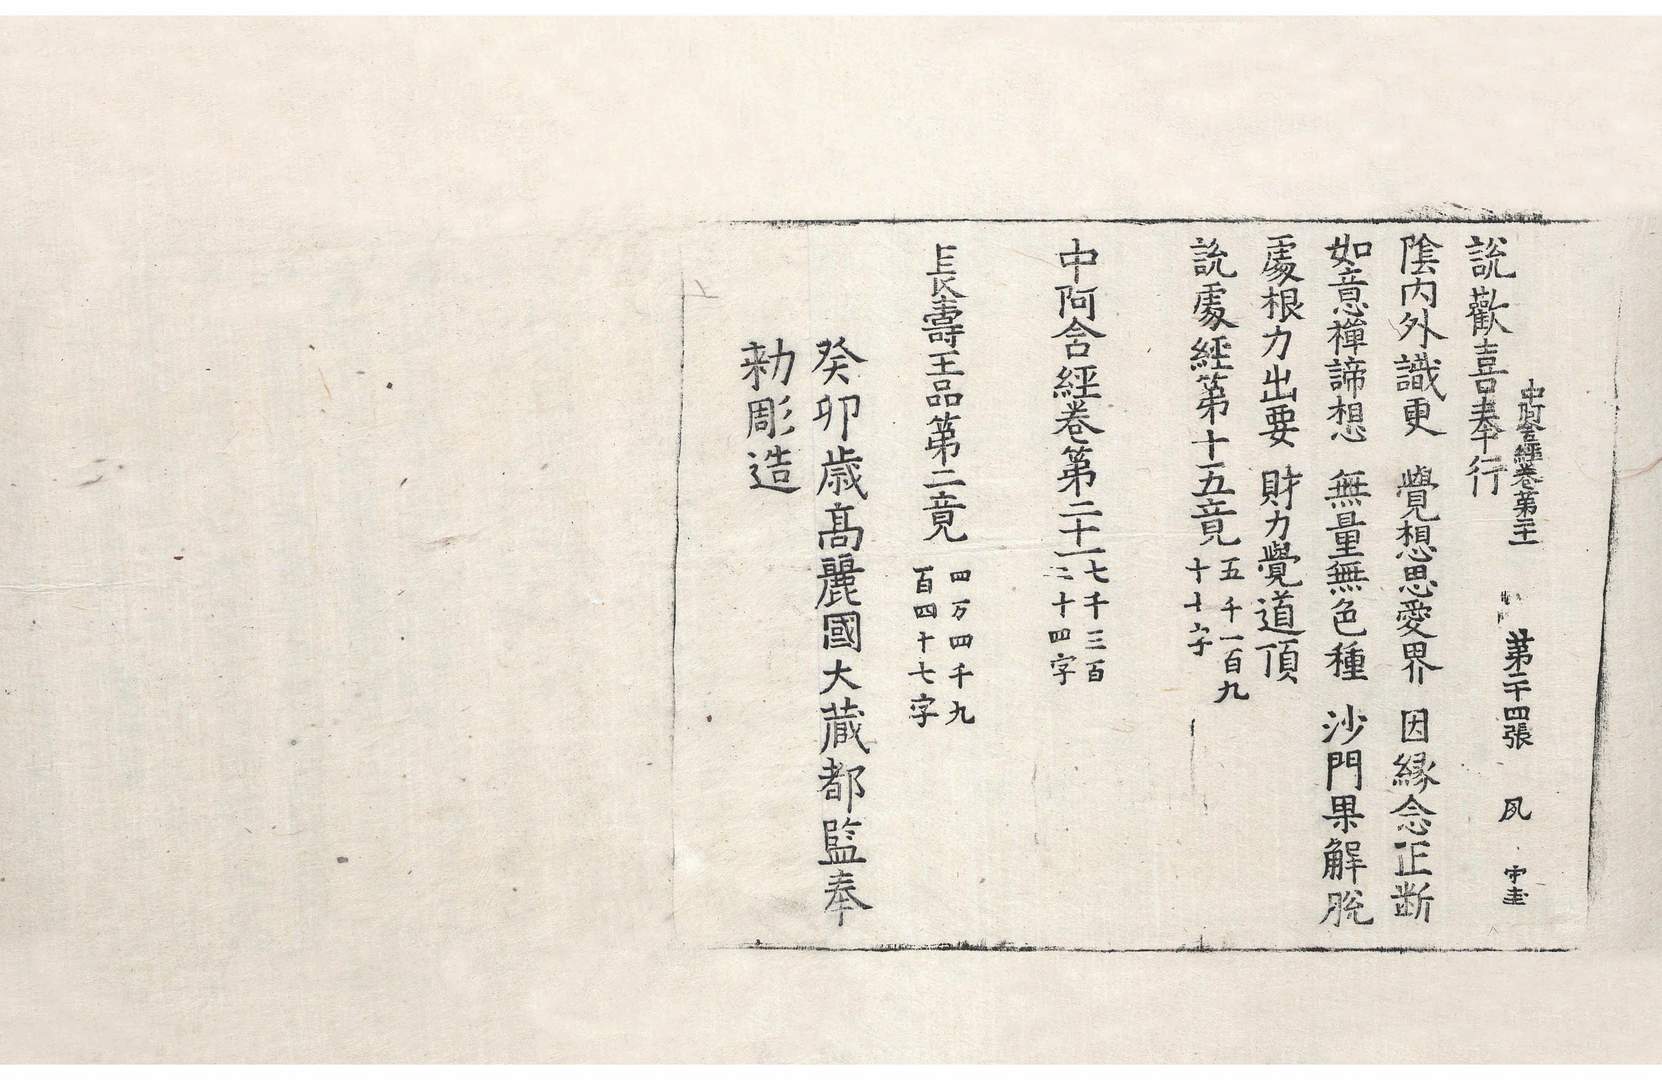 中阿含經卷第二十一　第二十四張　夙　中圭
說歡喜奉行
陰內外識更　覺想思愛界　因緣念正斷
如意禪諦想　無量無色種　沙門果解脫
處根力出要　財力覺道頂
說處經第十五竟
五千一百九
十十字
中阿含經卷第二十一
七千三百
二十四字
長壽王品第二竟
四万四千九
百四十七字
癸卯歲高麗國大藏都監奉
勑彫造